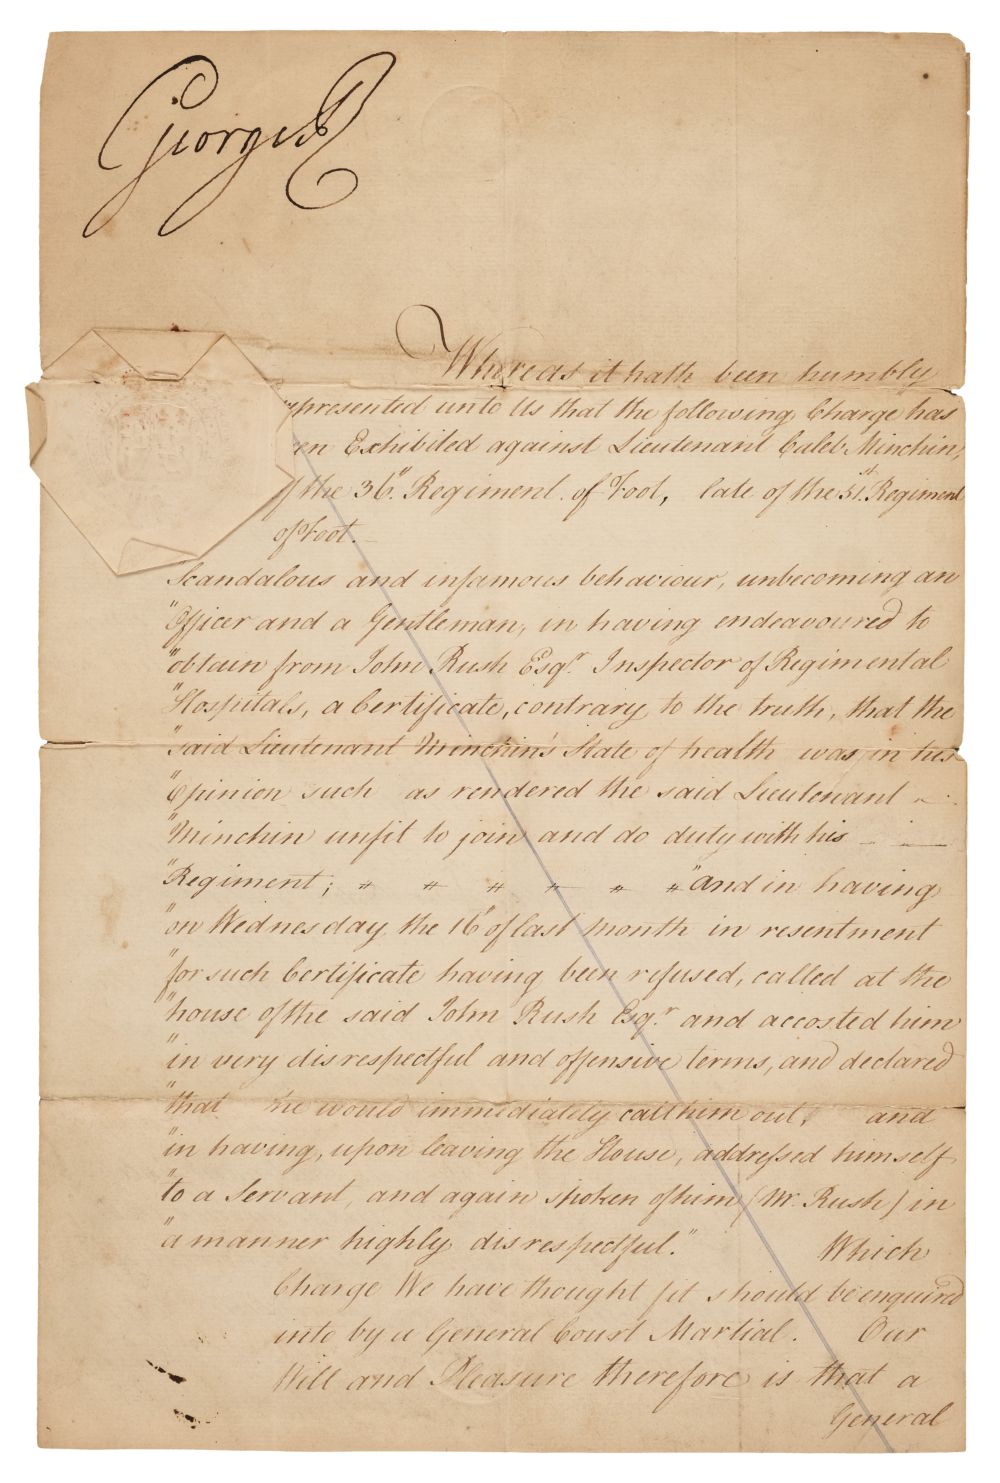 George R
Whereas it hath been humbly
presented unto Us that the following Charge has
en Exhibited against Lieutenant Caleb Minchin,
f the 36th Regiment of Foot, late of the 51st Regiment
of Foot.
Scandalous and infamous behaviour, unbecoming an
"Officer and a Gentleman, in having endeavoured to
"obtain from John Rush Esqr. Inspector of Regimental
"Hospitals, a Certificate, contrary to the truth, that the
"said Lieutenant Minchin's State of health was in his
"Opinion such as rendered the said Lieutenant
"Minchin unfit to join and do duty with his
"Regiment; " " " " " " "and in having
"on Wednesday the 16th of last month in resentment
"for such Certificate having been refused, called at the
"house of the said John Rush Esqr. and accosted him
"in very disrespectful and offensive terms, and declared
"that he would immediately call him out, and
"in having, upon leaving the House, addressed himself
"to a Servant, and again spoken of him (Mr. Rush) in
"a manner highly disrespectful." Which
Charge We have thought fit should be enquired
into by a General Court Martial. Our
Will and Pleasure therefore is that a
General